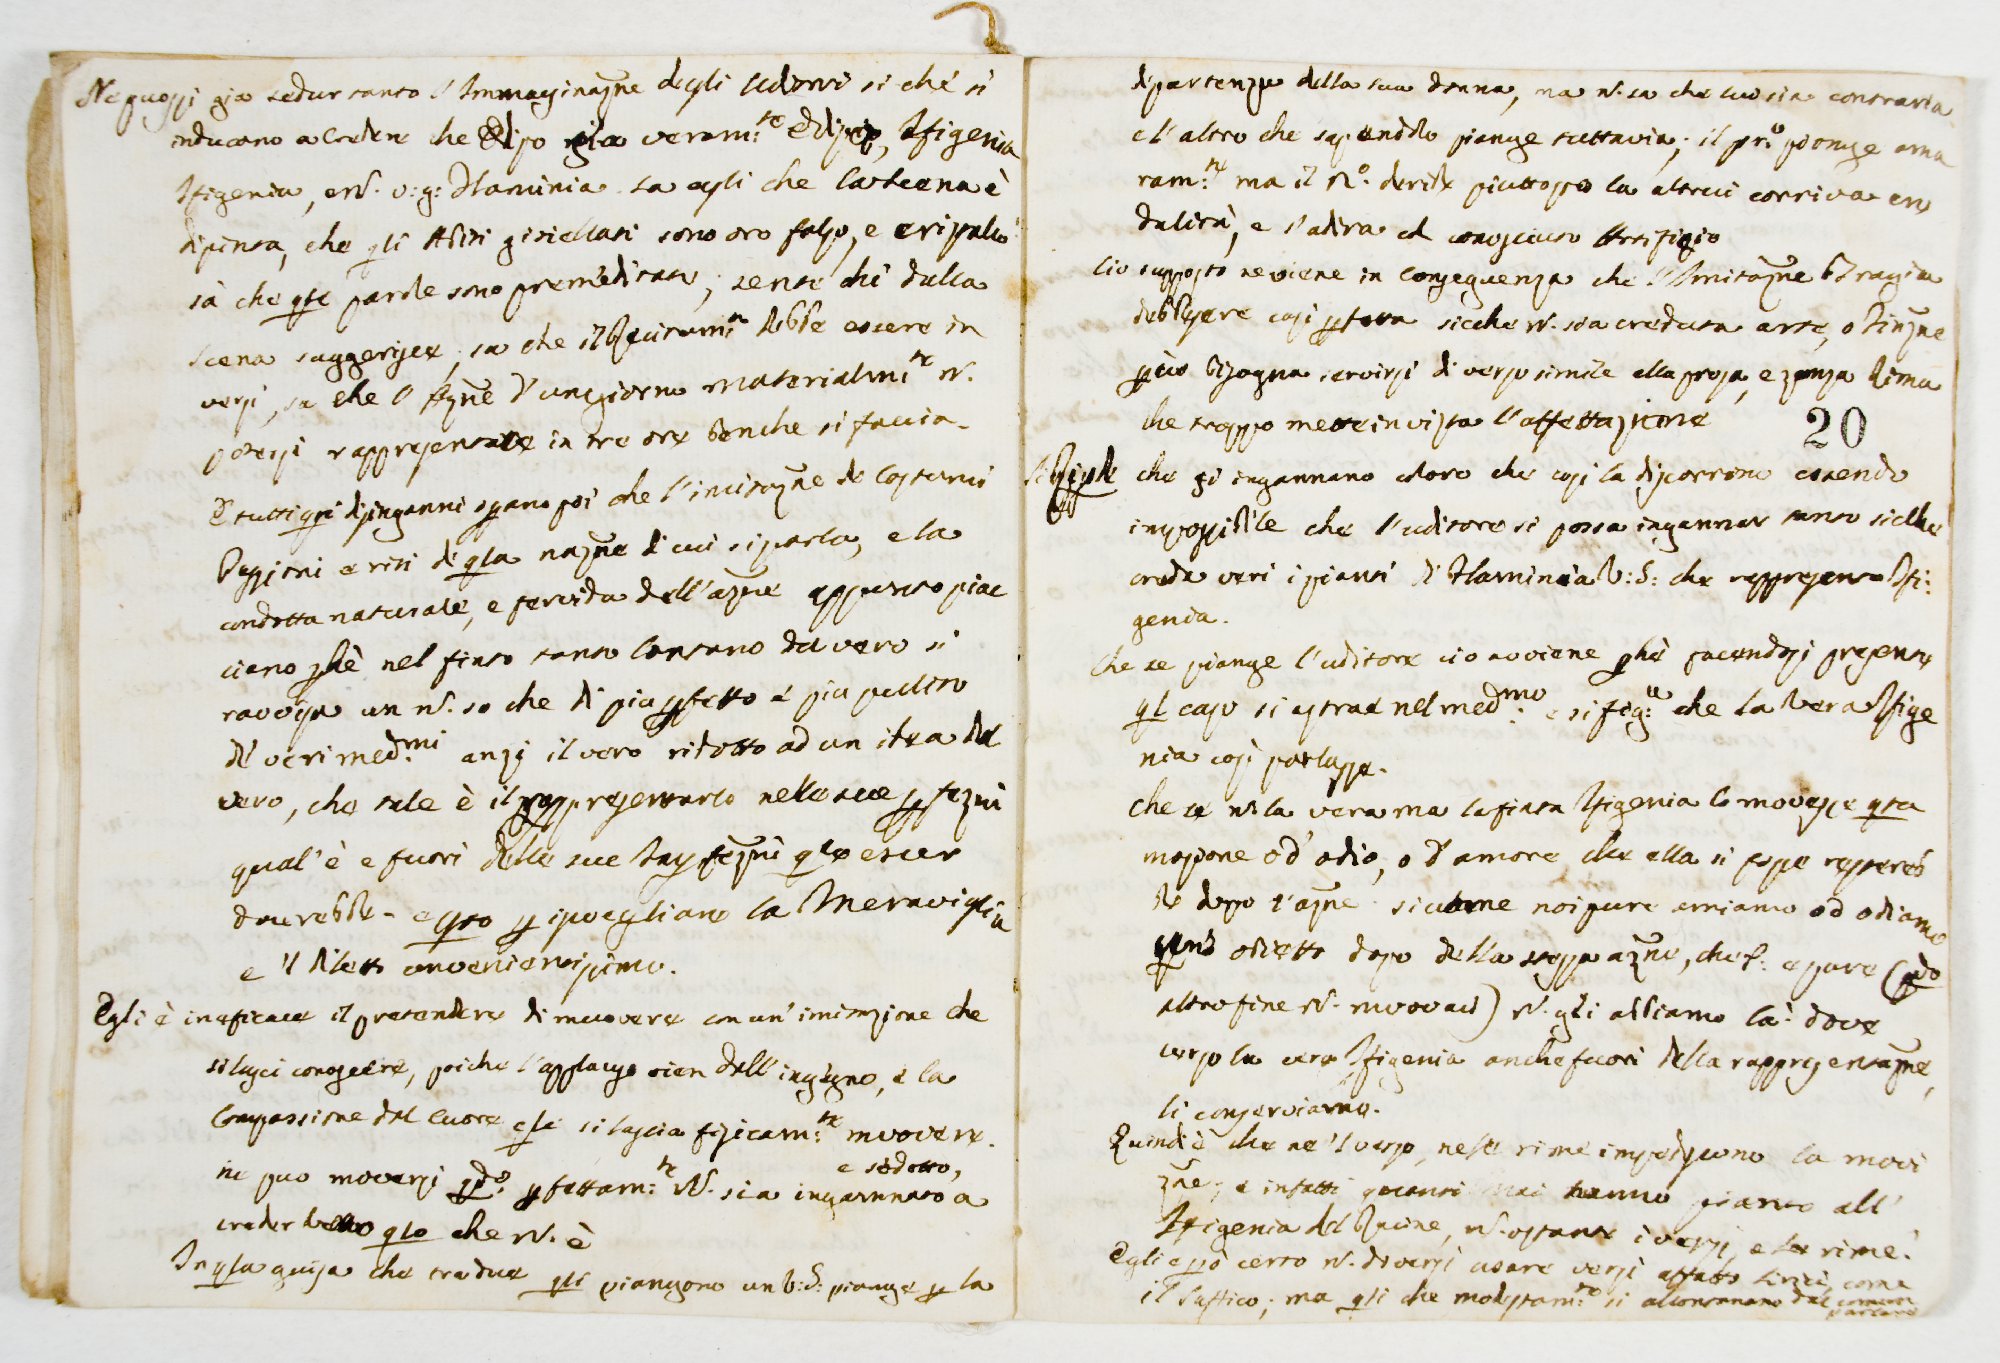 Ne puossi gia sedur tanto l'Immaginazne degli Uditori si che s'
inducano a creder che Edipo sia veram:te Edipo, Ifigenia
Ifigenia, e N. v:g: Flaminia sa egli che la scena è
dipinta, che gli Abiti gioiellati sono oro falso, e cristallo
sà che qste parole sono premeditate, sente chi dalla
scena suggerisce, sa che il Recitam:te debbe essere in
versi, sa che l'Azne d'un giorno materialm:te N.
potersi rappresentare in tre ore benche si faccia.
E tutti qsti disinganni opano poi che l'imitazne de Costumi
Passioni e riti di qlla nazne di cui si parla, e la
condotta naturale, e fervida dell'azne appunto piac
ciano pchè nel finto tanto lontano dal vero si
ravvisa un N. so che di piu pfetto e piu pulito
de' veri med:mi anzi il vero ridotto ad un idea del
vero, che tale è il rappresentarlo nelle sue pfezni
qual'è e fuori delle sue Impfezni qle esser
dourebbe - e qsto p isvegliare la Meraviglia
e 'l diletto convenientissimo.
Egli è inefficace il pretendere di muovere con un'imitazione che
si lasci conoscere, poiche l'applauso vien dall'ingegno, e la
Compassione dal cuore che si lascia fisicam:te muovere.
ne puo moversi qdo: pfettam:te N. sia ingannato a
e sedotto,
creder vero qlo che N. è
In qsta guisa che tra due qli piangono un v:S: piange p la
dipartenza della sua donna, ma N. sa che cio sia contraria
e l'altro che sapendolo piange tuttavia; il pr:o piange ama
ram:te ma il N:o deride piuttosto la altrui corriva cre
dulità, e s'adira al conosciuto Artifizio
Cio supposto ne viene in conseguenza che l'Imitazne Tragica
debb'essere cosi pfetta sicche N. sia creduta arte, o Finzne
pciò bisogna servirsi di verso simile alla prosa, e senza Rima
che troppo mette in vista l'affettazione
20
Si Rispde che si ingannano coloro che cosi la discorrono essendo
impossibile che l'uditore si possa ingannar tanto sicchè
creda veri i pianti di Flaminia V:S: che rappresenta Ifi:
genia.
Che se piange l'uditore cio avviene pchè facendosi presente
ql caso si astrae nel med:mo e si fig:a che la vera Ifige
nia cosi parlasse.
Che se N. la vera ma la finta Ifigenia lo movesse qsta
mozione o d'odio, o d'amore che ella si fosse resterebb
be dopo l'azne sicome noi pure amiamo od odiamo
oltro fine N. muovaci) N. gli abbiamo là dove
verso la vera Ifigenia anche fuori della rappresentazne,
li conserviamo.
Quindi è che ne 'l verso, ne le rime impediscono la movi
zne, e infatti quanti mai hanno pianto all'
Ifigenia del Racine, N. ostante i versi, e le rime.
Egli è pò certo N. doversi usare versi affatto lirici, come
il Saffico; ma qli che modestam:te si allontanano dal comun
parlare